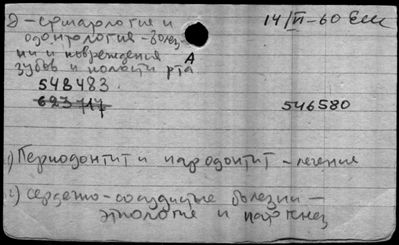 Д - стоматология и
одонтология - болез-
ни и повреждения
зубов и полости рта
А
14/II-60
548483
623717
546580
1) Периодонтит и пародонтит - лечение
2) Сердечно-сосудистые болезни -
этиология и патогенез